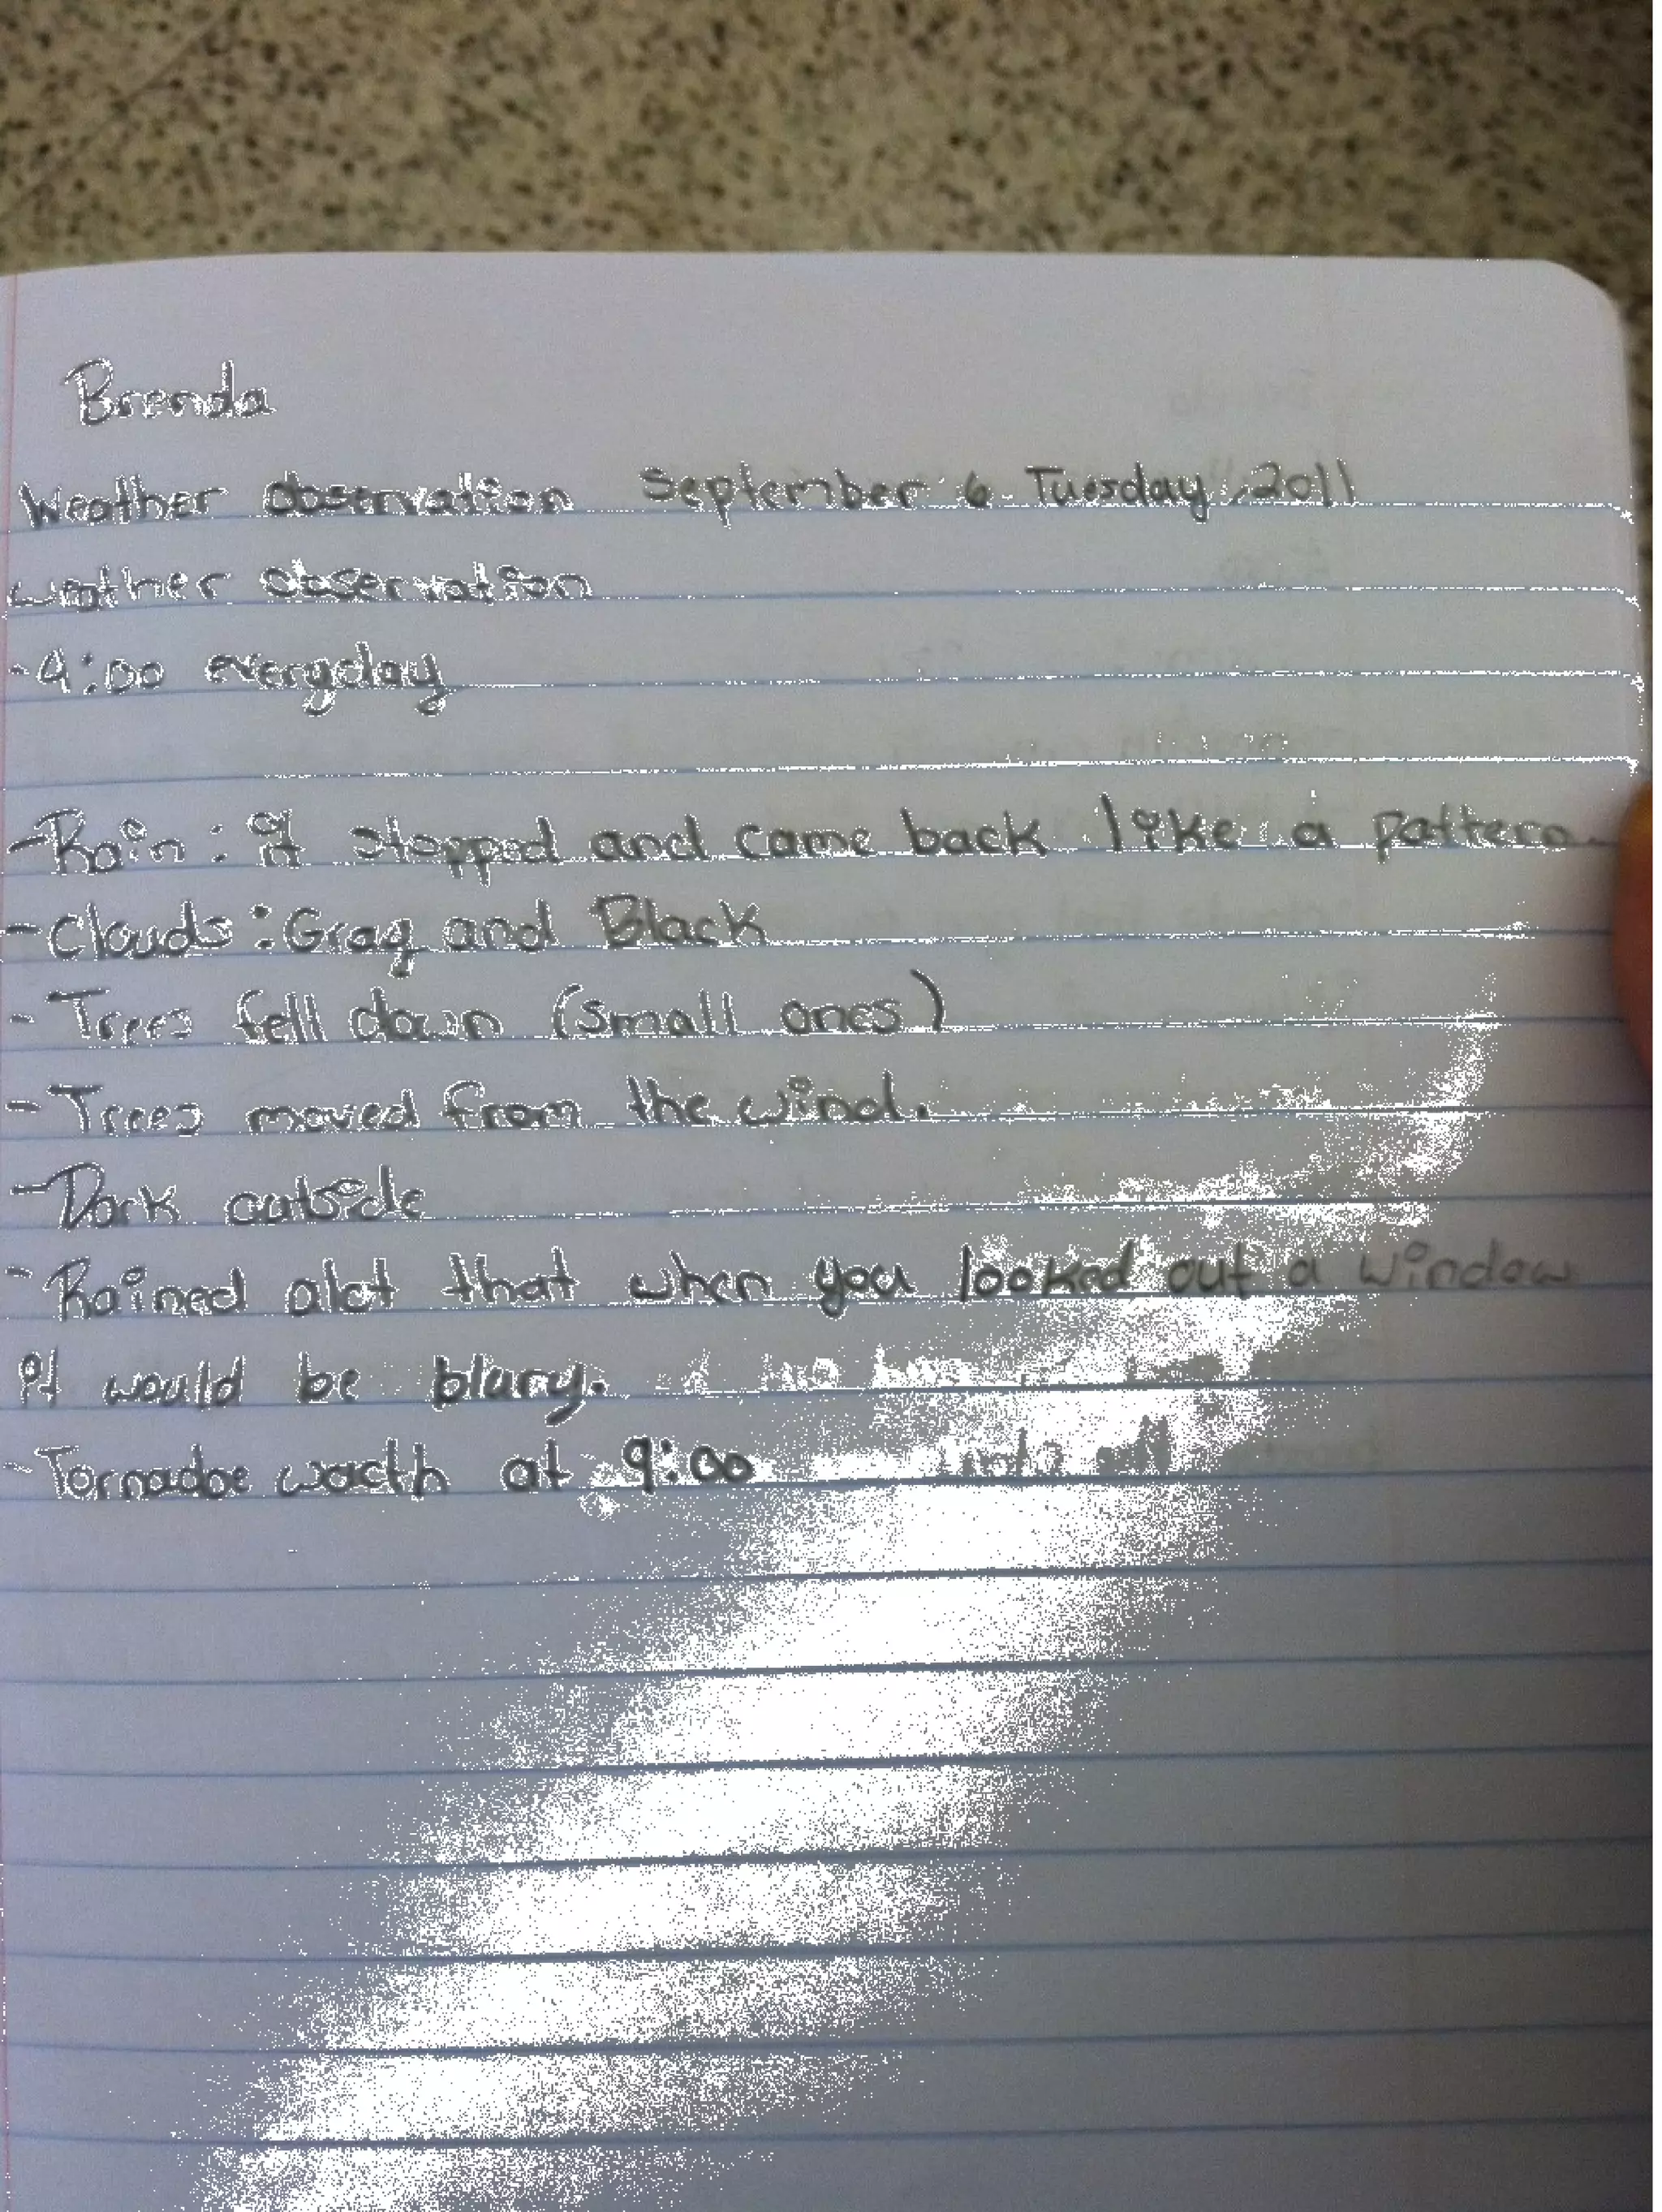 Brenda
Weather observation September 6 Tuesday, 2011
weather observation
-9:00 everyday
-Rain: it stopped and came back like a pattern.
-Clouds: Gray and Black
- Trees fell down (small ones)
- Trees moved from the wind.
-Dark outside
-Rained alot that when you looked out a window
it would be blury.
-Tornadoe wacth at 9:00